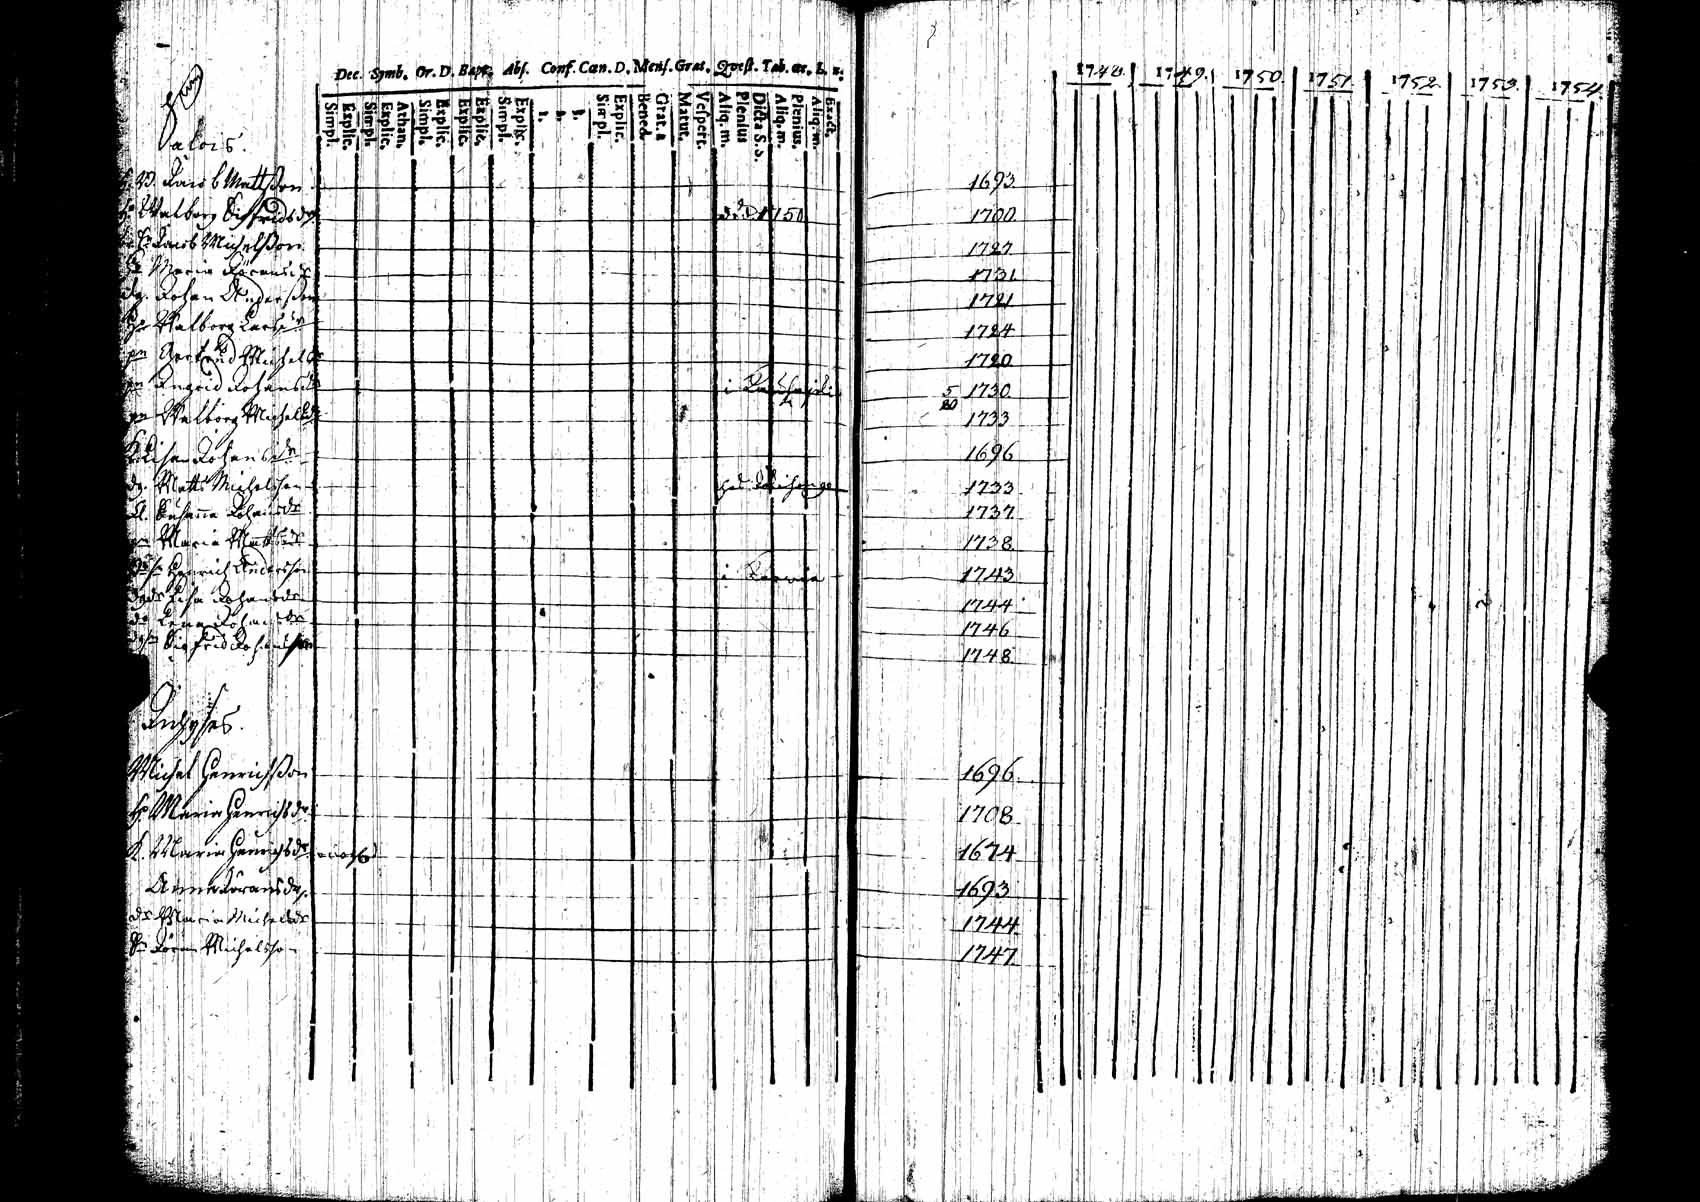 Dec. Symb. Or. D. Bapt. Abs. Conf. Cœn. D. Mens. Grat. Qvest. Tab. œc. L. n.
Simpl. Explic. Simpl. Explic. Athan. Simpl. Explic. Explic. Explic. Simpl. Explic. 1. 2. 3. Simpl. Explic. Bened. Grat. a Matut. Vespert. Aliq. m. Plenius Dicta S. S. Aliq. m. Plenius. Aliq. m. Exact.
1748. 1749. 1750. 1751. 1752. 1753. 1754.
Valois.
Jacob Mattsson 1693
Walborg Sigfridsdr 1750 1700
Jacob Michelsson 1727
Maria Göransdr 1731
Johan Andersson 1721
Walborg Larsdr 1724
Gertrud Michelsdr 1720
Ingrid Johansdr i 5 20 1730
Walborg Michelsdr 1733
Lisa Johansdr 1696
Matts Michelsson 1733
Susanna Johansdr 1737
Maria Mattsdr 1738
Henrich Andersson i 1743
Lisa Johansdr 1744
Lena Johansdr 1746
Sigfrid Johansson 1748
Michel Henrichsson 1696
Maria Henrichsdr 1708
Maria Henrichsdr 1674
Anna Göransdr. 1693
Maria Michelsdr 1744
Göran Michelsson 1747